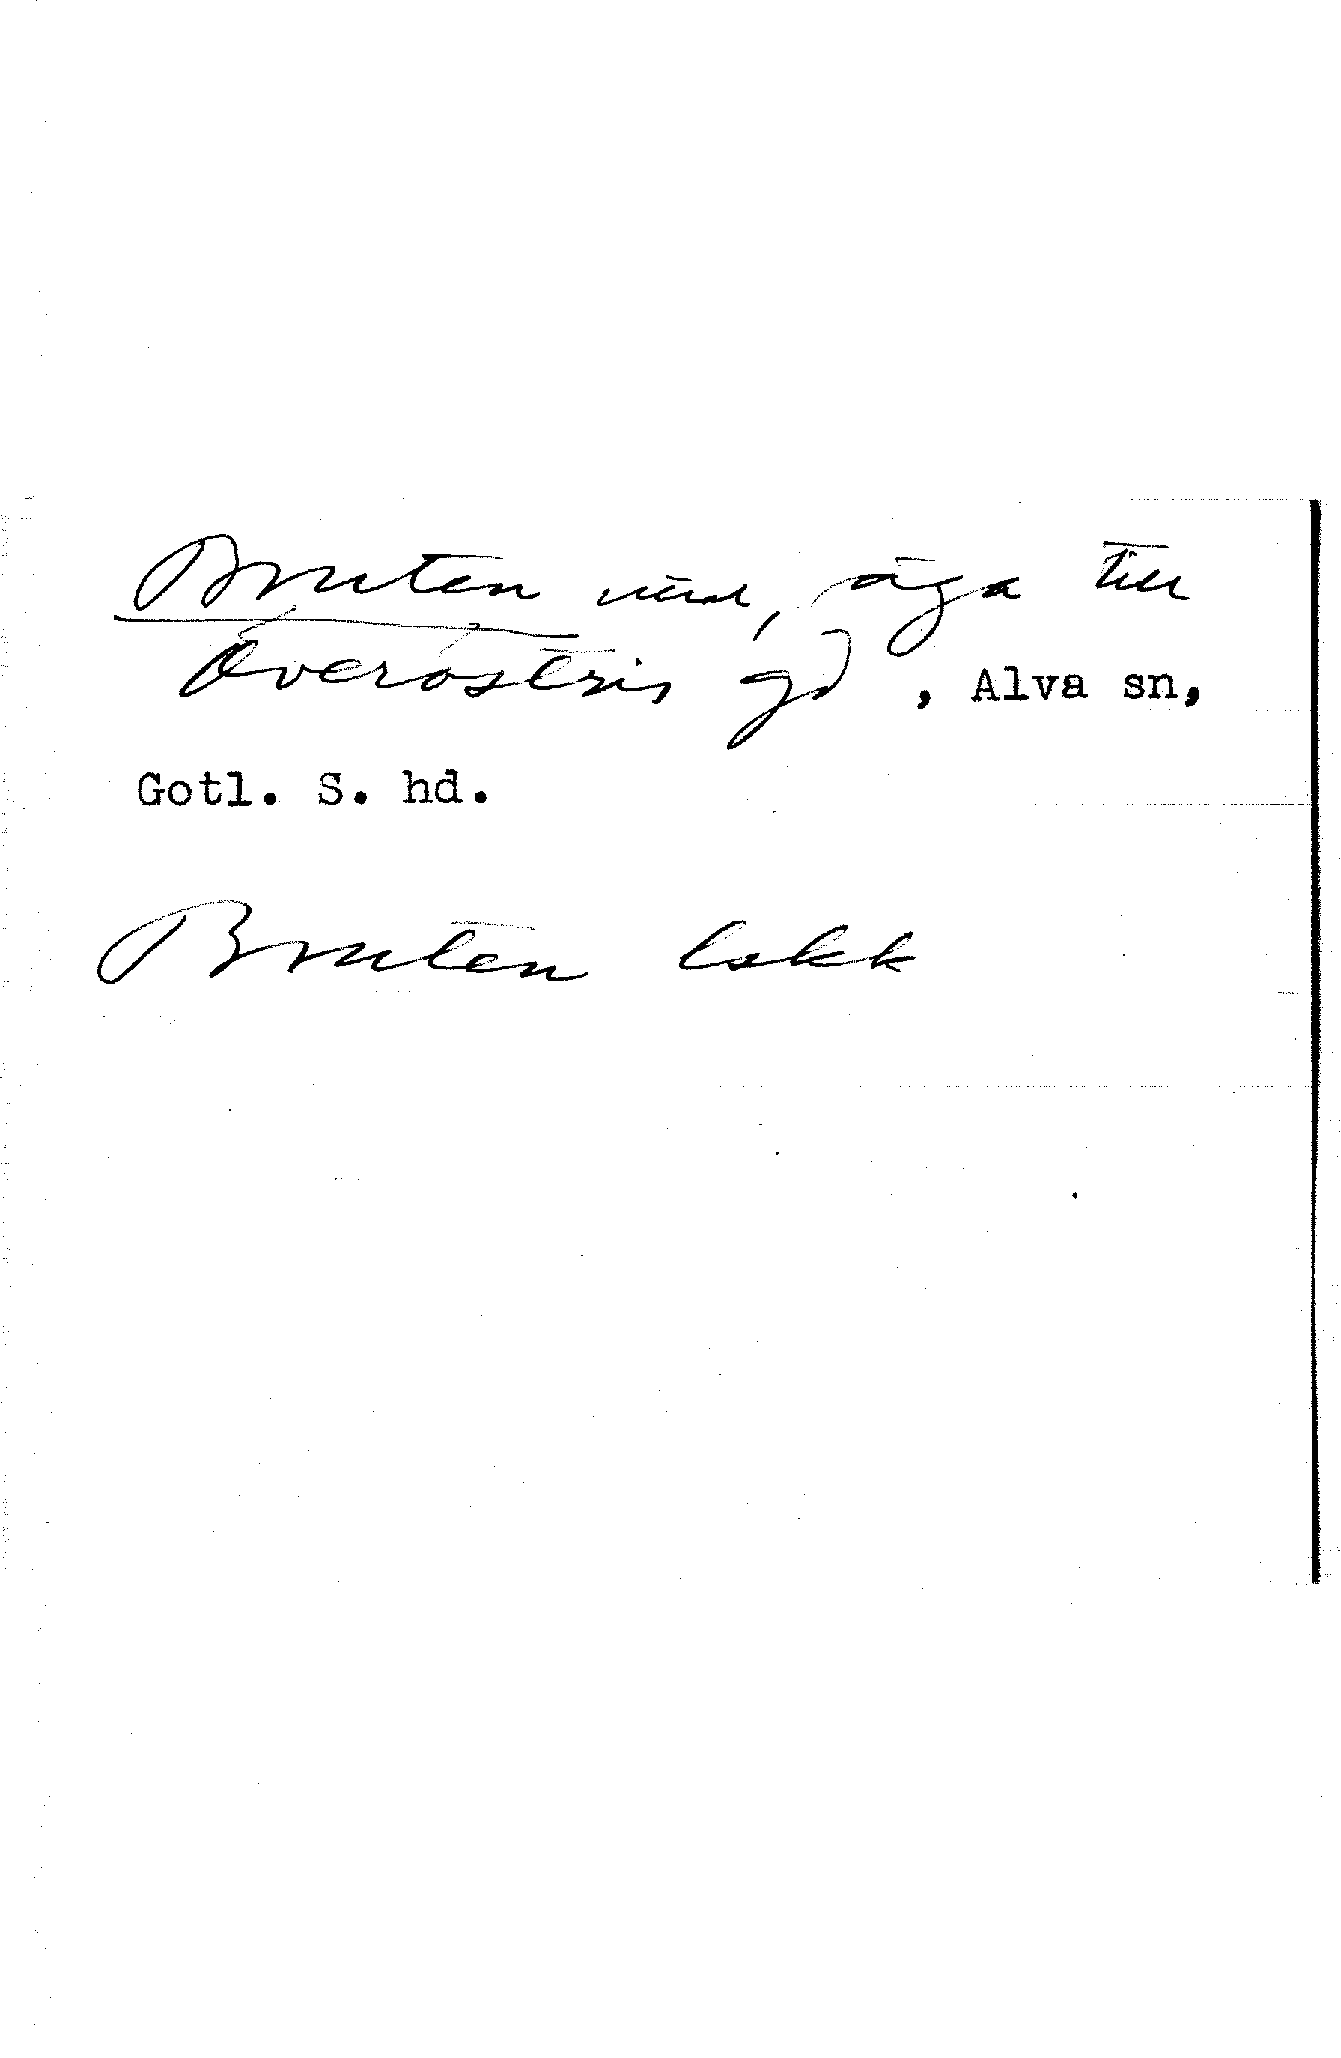 Bruten äga till
Överöstris gd, Alva sn,
Gotl. S. hd.
Bruten lakk